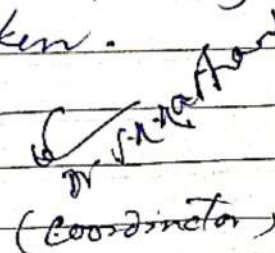 ken.
Dr S.R. Rathod
(Coordinator)